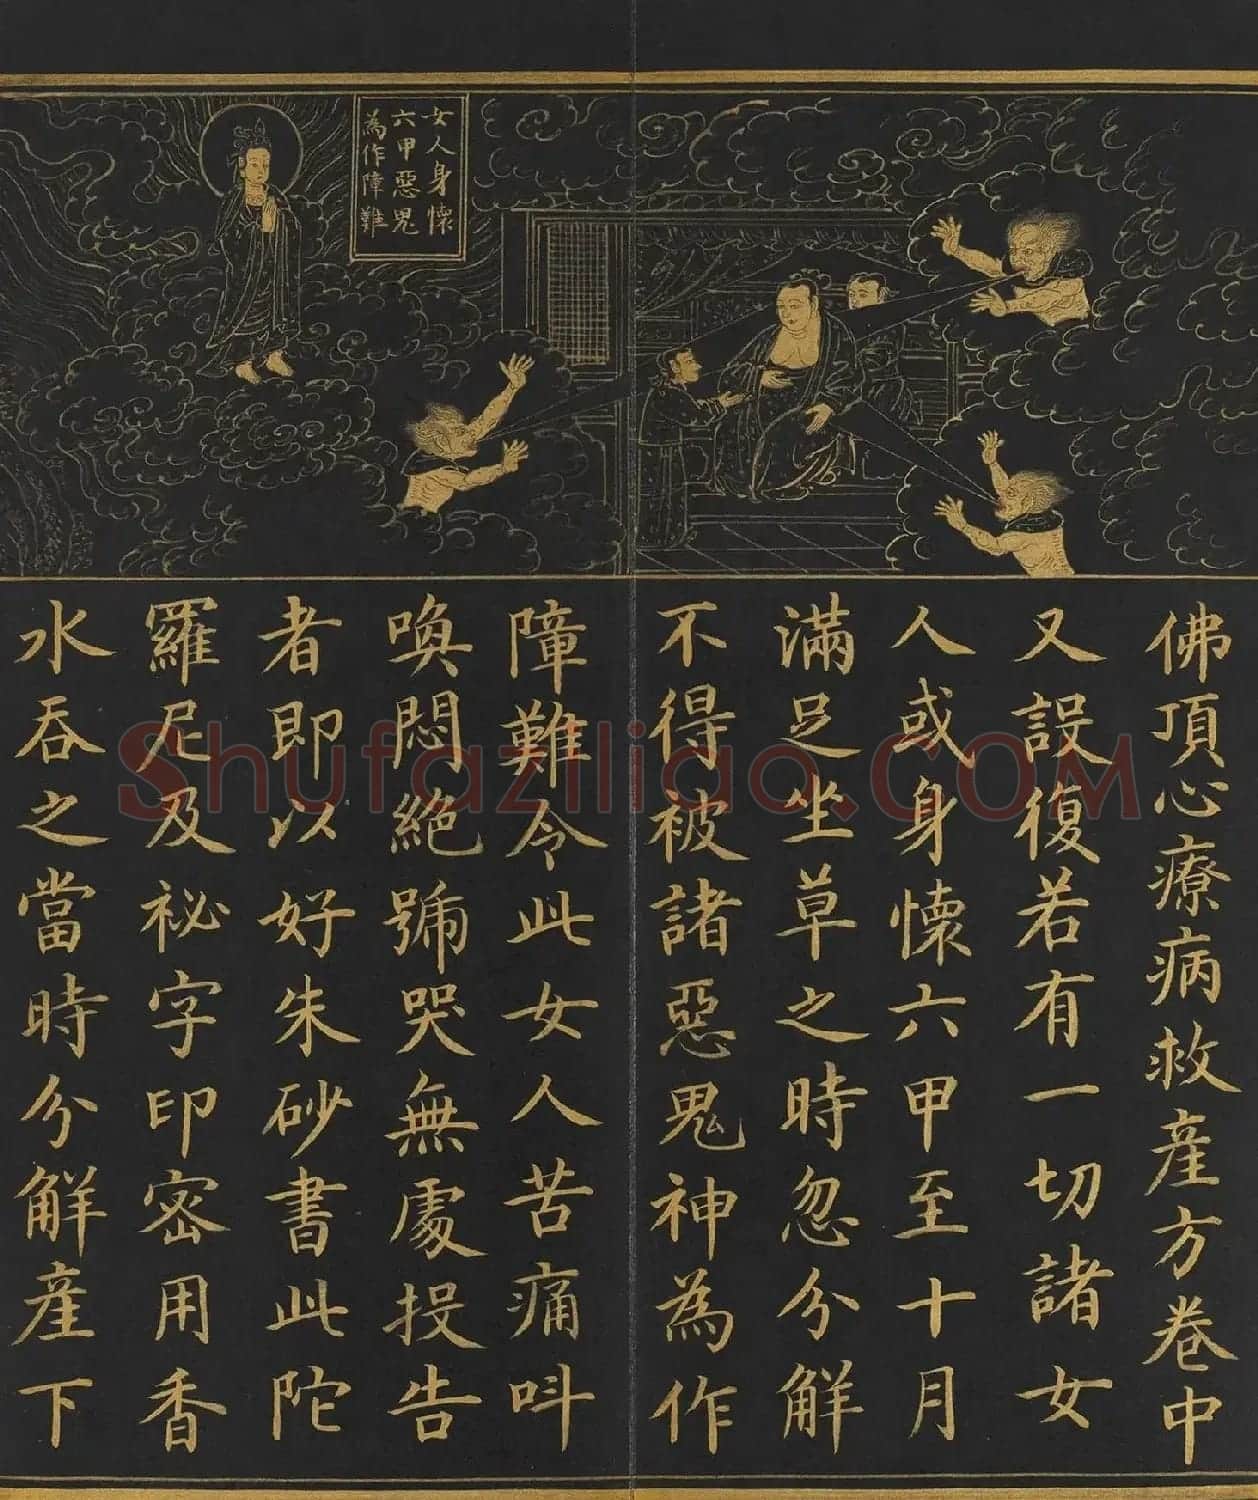 女人身懷
六甲惡鬼
為作障難
佛頂心療病救產方卷中
又設復若有一切諸女
人或身懷六甲至十月
滿足坐草之時忽分解
不得被諸惡鬼神為作
障難令此女人苦痛呌
喚悶絕號哭無處投告
者即以好朱砂書此陀
羅尼及祕字印密用香
水吞之當時分解產下
Shufaziliao.COM